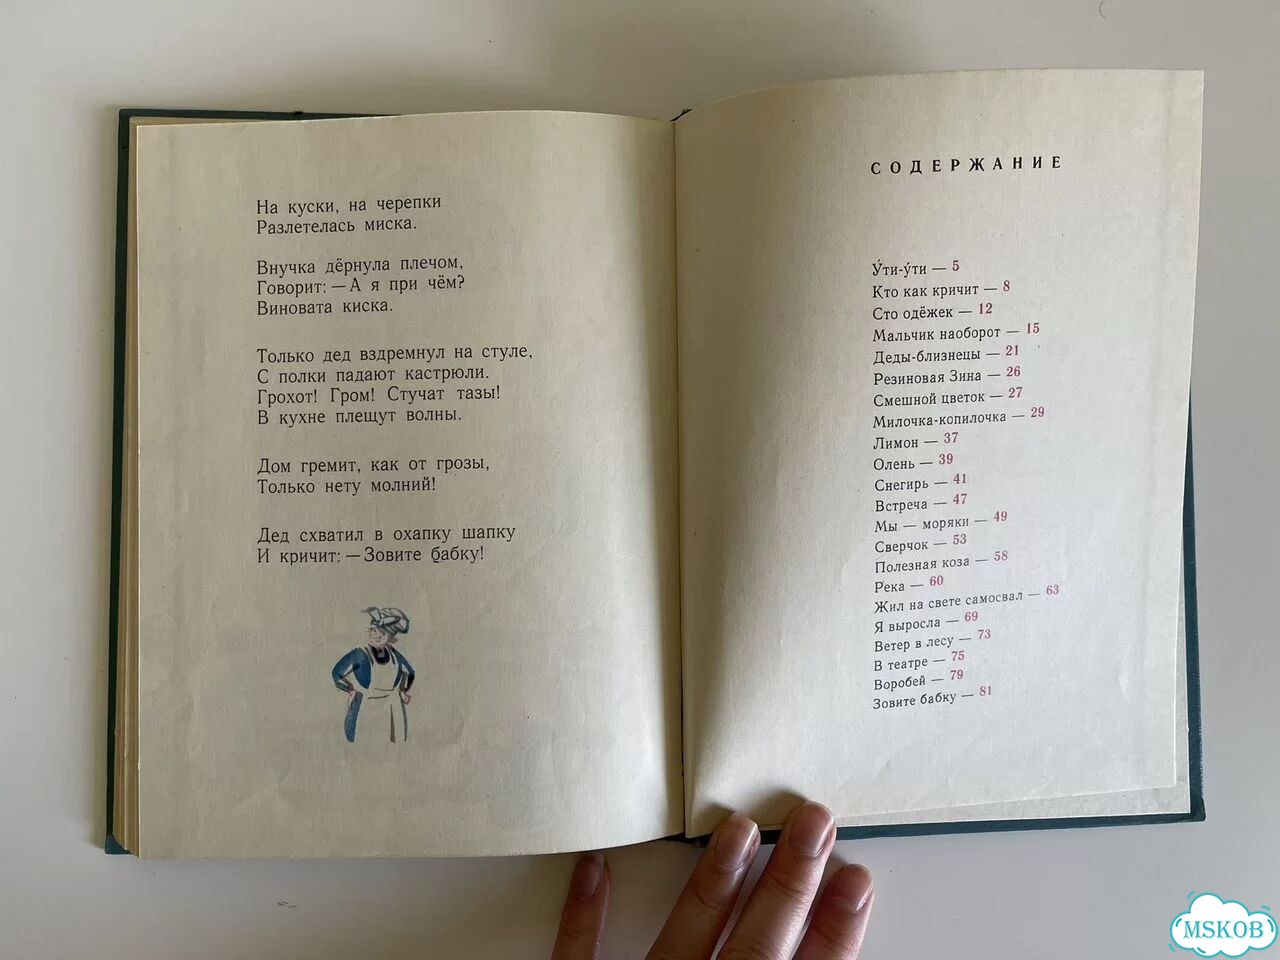 На куски, на черепки
Разлетелась миска.
Внучка дёрнула плечом,
Говорит: — А я при чём?
Виновата киска.
Только дед вздремнул на стуле,
С полки падают кастрюли.
Грохот! Гром! Стучат тазы!
В кухне плещут волны.
Дом гремит, как от грозы,
Только нету молний!
Дед схватил в охапку шапку
И кричит: — Зовите бабку!
СОДЕРЖАНИЕ
У́ти-у́ти — 5
Кто как кричит — 8
Сто одёжек — 12
Мальчик наоборот — 15
Деды-близнецы — 21
Резиновая Зина — 26
Смешной цветок — 27
Милочка-копилочка — 29
Лимон — 37
Олень — 39
Снегирь — 41
Встреча — 47
Мы — моряки — 49
Сверчок — 53
Полезная коза — 58
Река — 60
Жил на свете самосвал — 63
Я выросла — 69
Ветер в лесу — 73
В театре — 75
Воробей — 79
Зовите бабку — 81
MSKOB